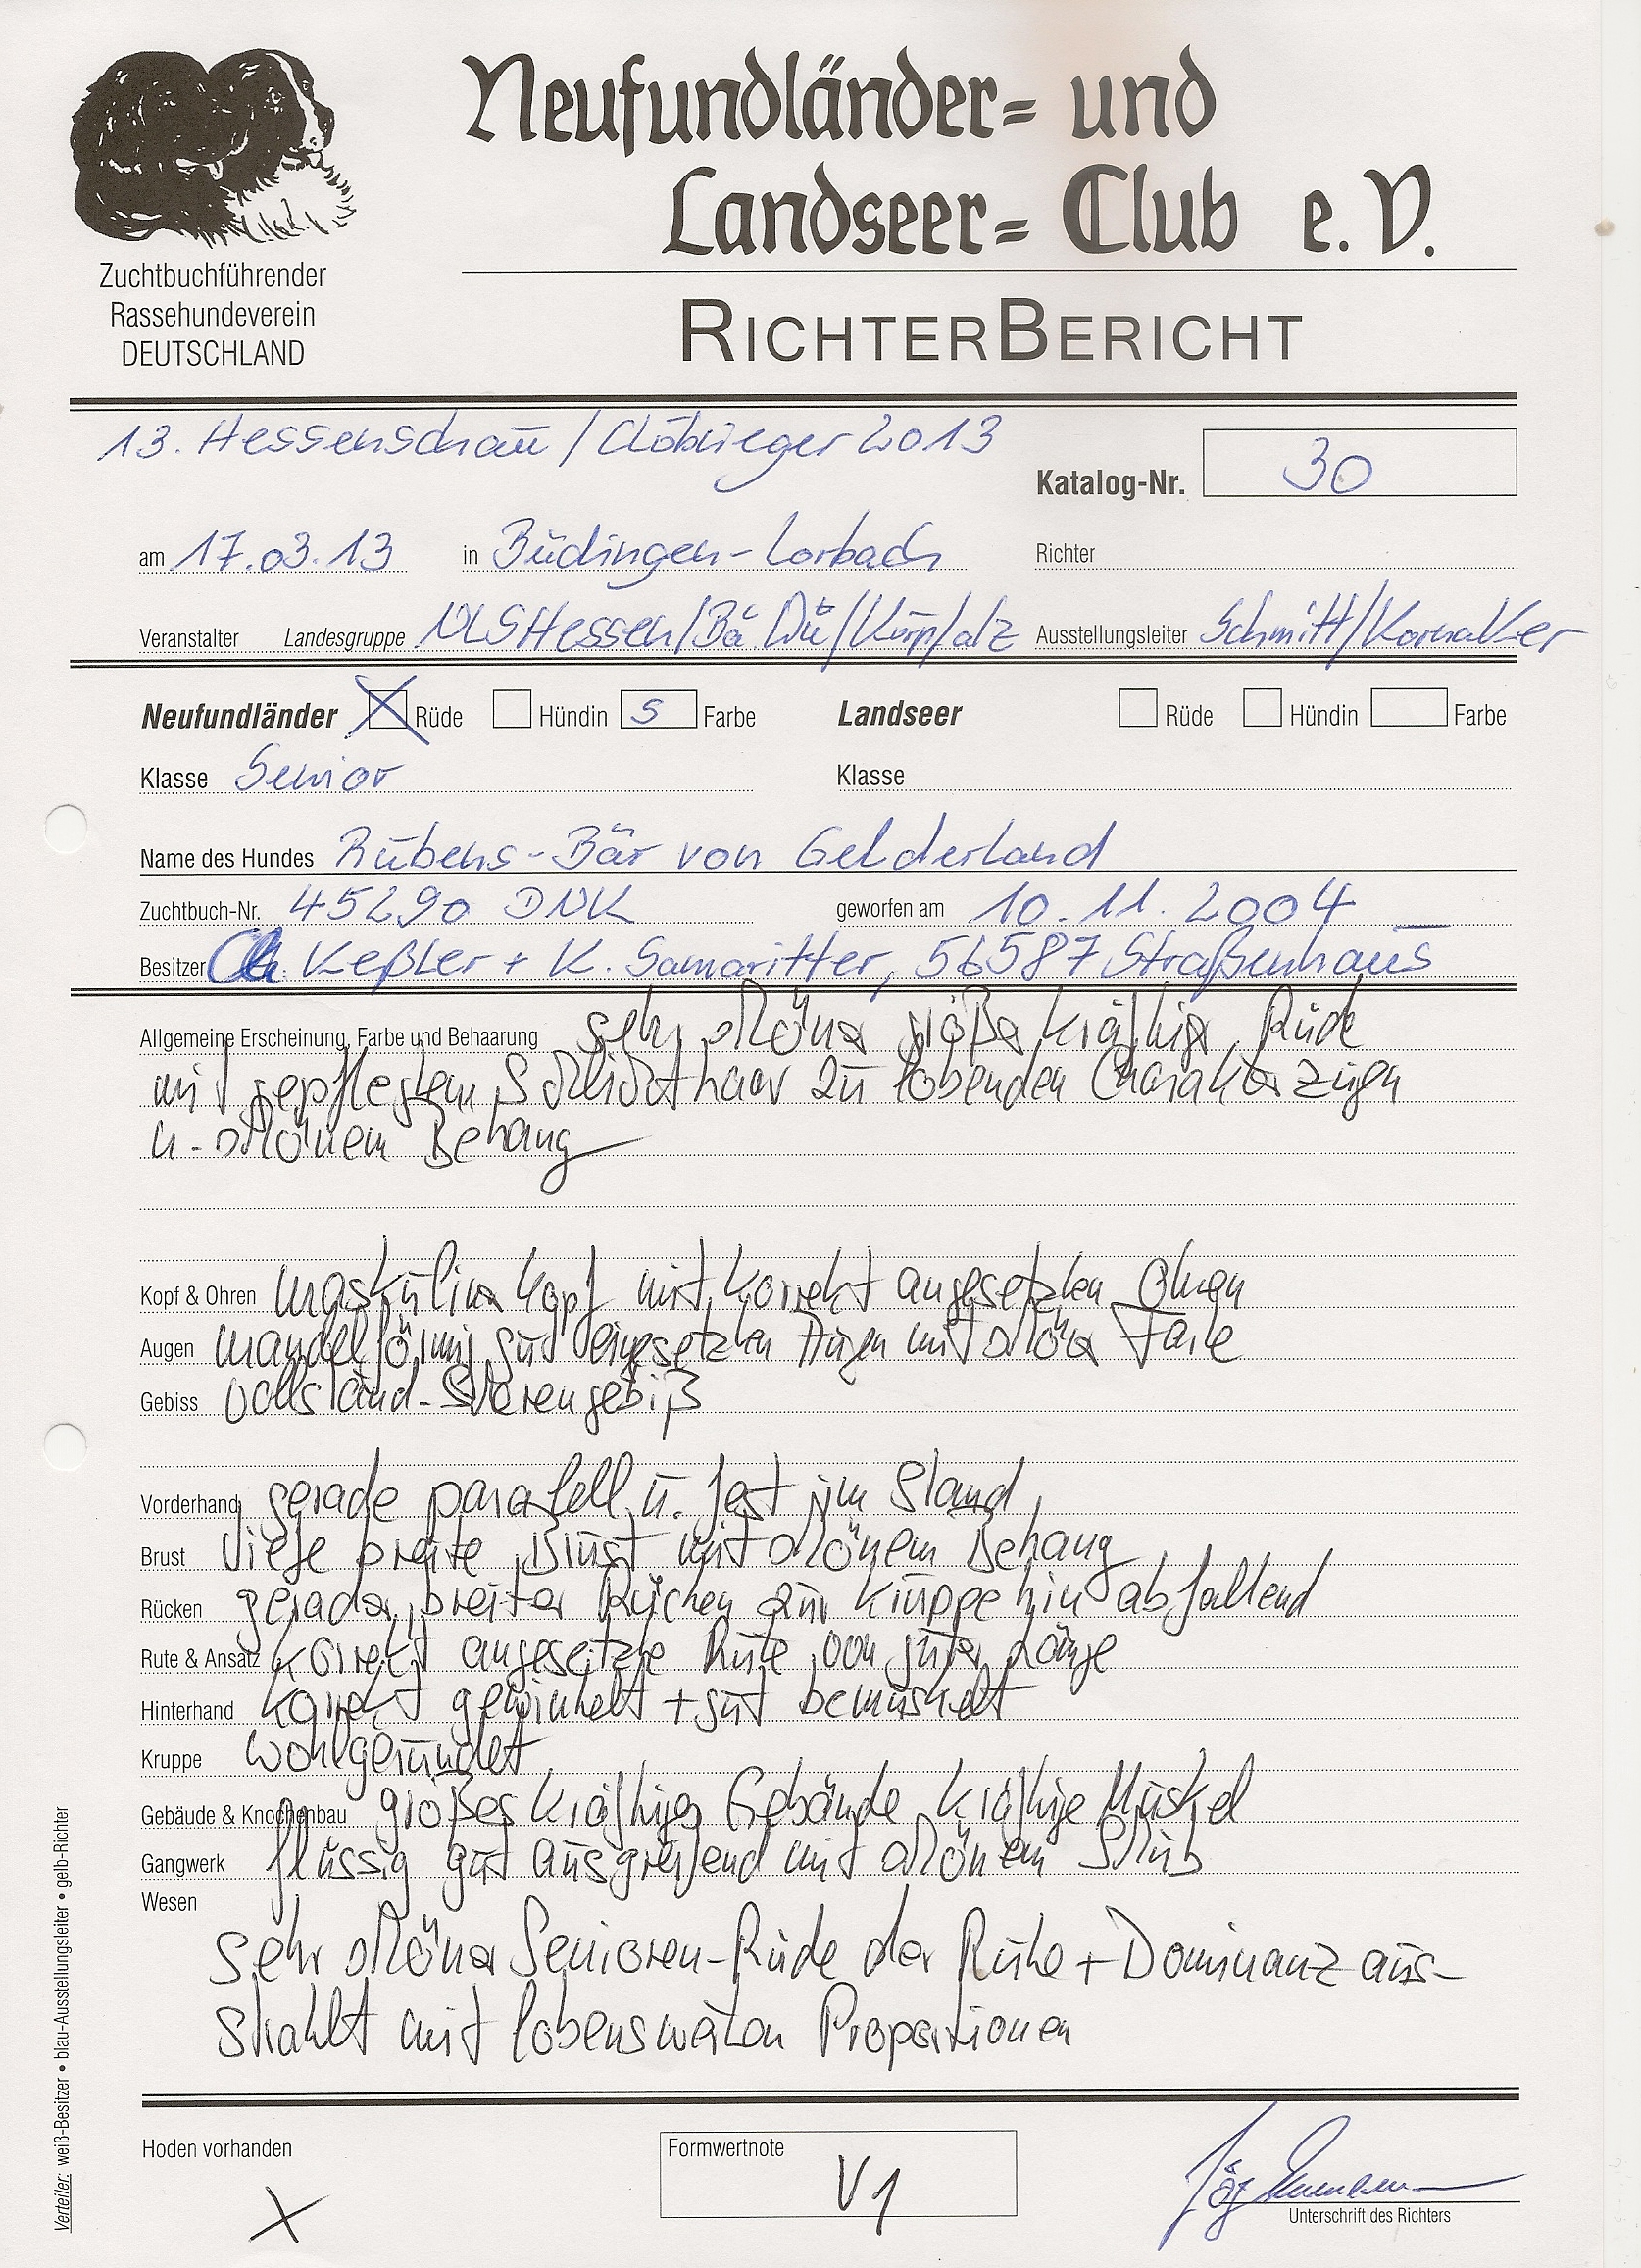 Neufundländer= und
Landseer= Club e. V.
Zuchtbuchführender
Rassehundeverein
DEUTSCHLAND
RICHTERBERICHT
13. Hessenschau / Clubsieger 2013
Katalog-Nr. 30
am 17.03.13 in Büdingen-Lorbach Richter
Veranstalter Landesgruppe Hessen/Ba Wü/Kurpfalz Ausstellungsleiter Schmitt/
Neufundländer X Rüde Hündin S Farbe Landseer Rüde Hündin Farbe
Klasse Senior Klasse
Name des Hundes Rubens-Bär von Gelderland
Zuchtbuch-Nr. 45290 DNK geworfen am 10.11.2004
Besitzer Keßler + K. Samaritter, 56587 Straßenhaus
Allgemeine Erscheinung, Farbe und Behaarung sehr schöner großer kräftiger Rüde
mit gepflegtem Schlichthaar zu lobenden Charakterzügen
u. schönem Behang
Kopf & Ohren maskuliner Kopf mit korrekt angesetzten Ohren
Augen mandelförmig gut eingesetzten Augen mit schöner Farbe
Gebiss vollständ. Scherengebiß
Vorderhand gerade parallel u. fest im Stand
Brust tiefe breite Brust mit schönem Behang
Rücken gerader, breiter Rücken zur Kruppe hin abfallend
Rute & Ansatz korrekt angesetzte Rute von guter Länge
Hinterhand korrekt gewinkelt + gut bemuskelt
Kruppe wohlgerundet
Gebäude & Knochenbau großes kräftiges Gebäude kräftige Muskel
Gangwerk flüssig gut ausgreifend mit schönem Schub
Wesen
sehr schöner Senioren-Rüde der Ruhe + Dominanz aus-
strahlt mit lobenswerten Proportionen
Hoden vorhanden X
Formwertnote V1
Unterschrift des Richters
Verteiler: weiß-Besitzer • blau-Ausstellungsleiter • gelb-Richter